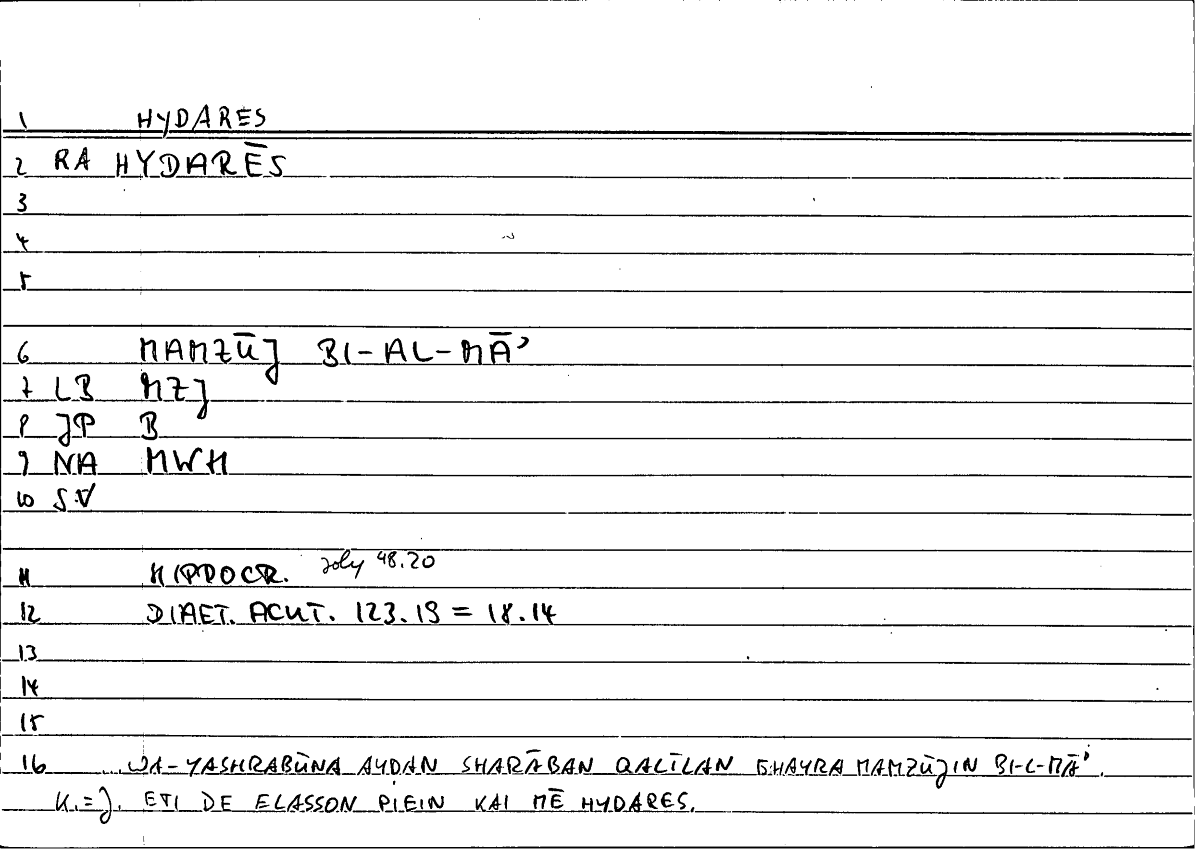 1 HYDARES
2 RA HYDARĒS
3
4
5
6 MAMZŪJ BI-AL-MĀ’
7 LB MZJ
8 JP B
9 NA MWH
10 SV
11 HIPPOCR. Joly 48.20
12 DIAET. ACUT. 123.19 = 18.14
13
14
15
16 WA-YASHRABŪNA AYDAN SHARĀBAN QALĪLAN GHAYRA MAMZŪJIN BI-L-MĀ’.
K.=J. ETI DE ELASSON PIEIN KAI MĒ HYDARES.